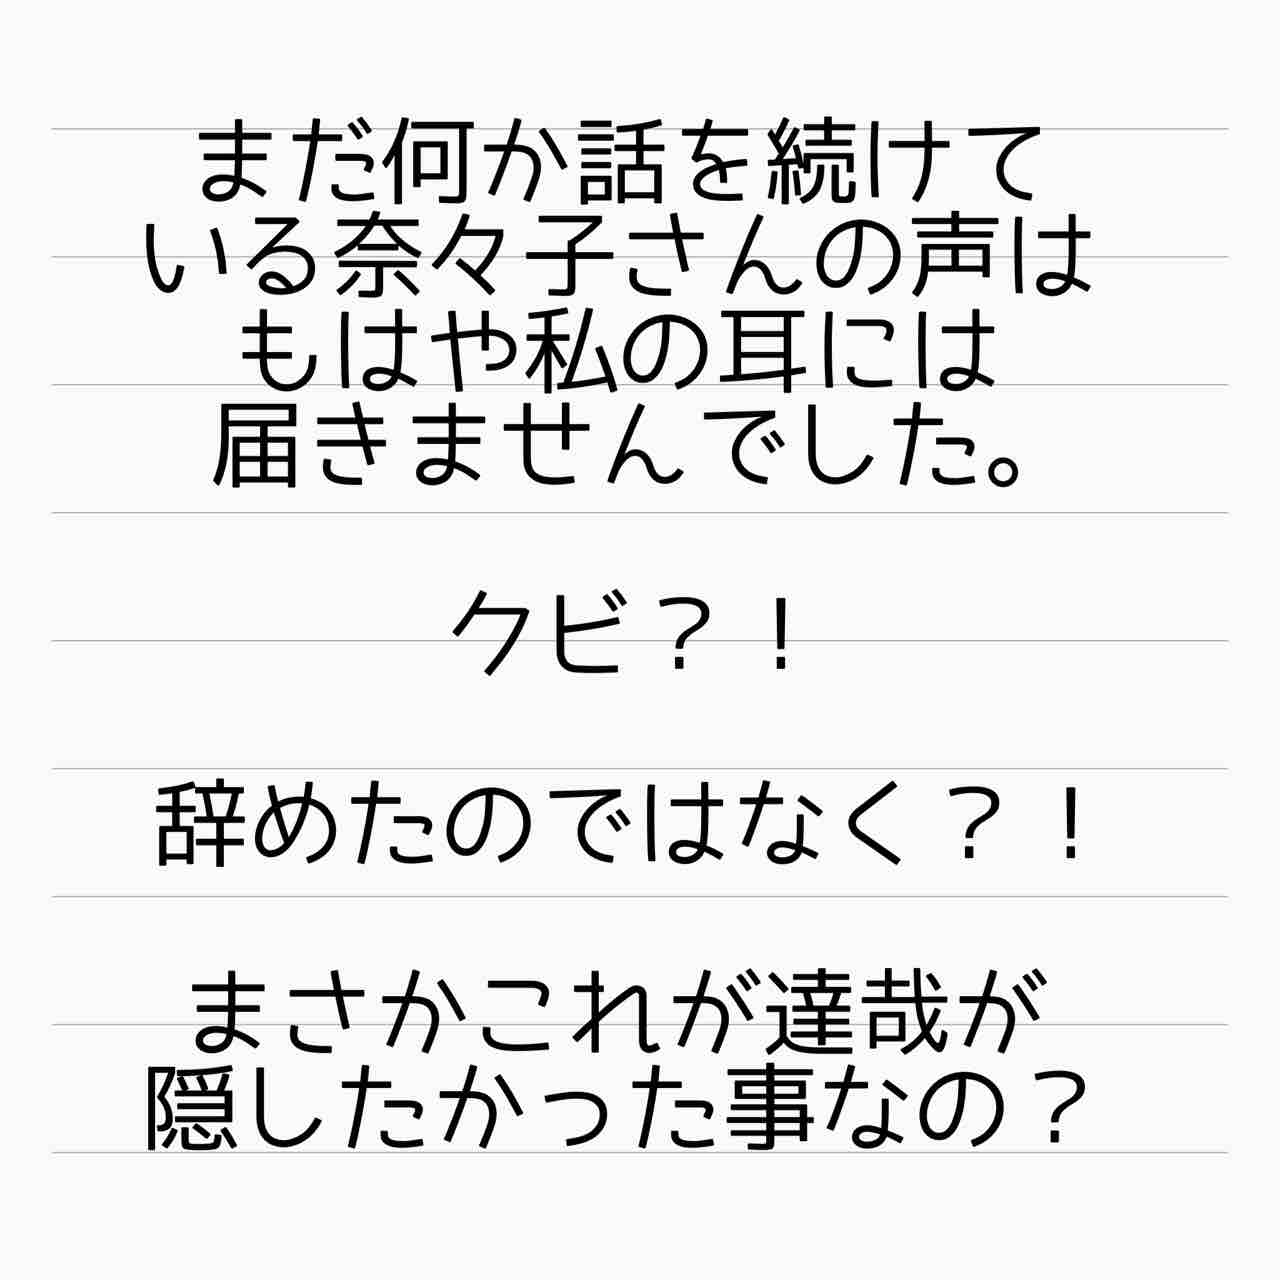 まだ何か話を続けて
いる奈々子さんの声は
もはや私の耳には
届きませんでした。
クビ？！
辞めたのではなく？！
まさかこれが達哉が
隠したかった事なの？